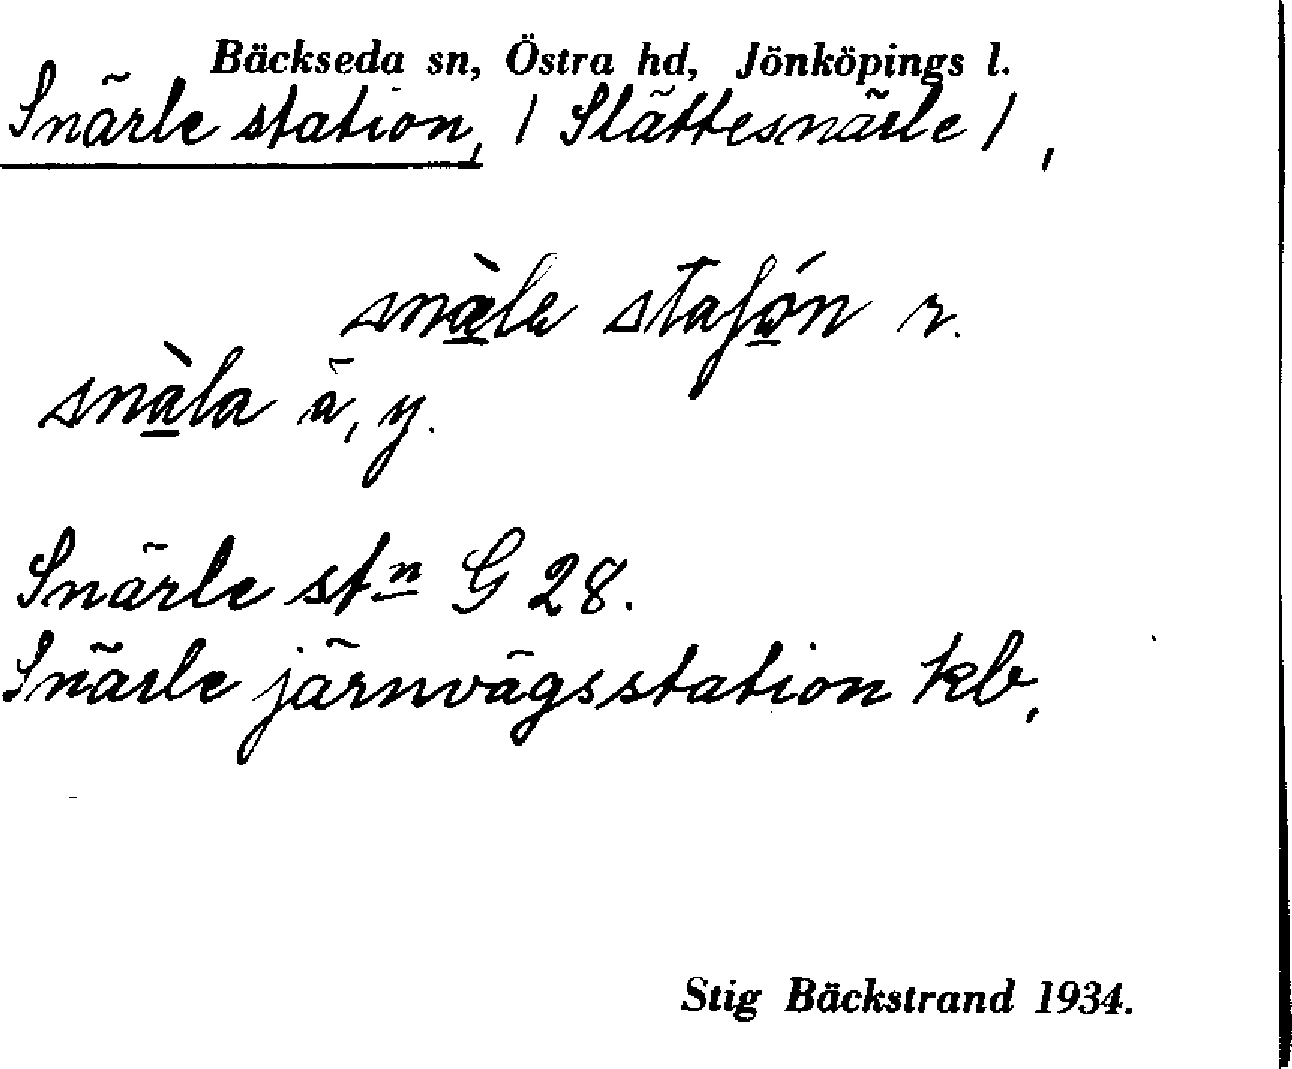 Bäckseda sn, Östra hd, Jönköpings l.
Snärle station, / Slättesnärle /,
snæ̀la staʃón r.
snàla ä, y.
Snärle stn G 28.
Snärle järnvägsstation kb,
Stig Bäckstrand 1934.